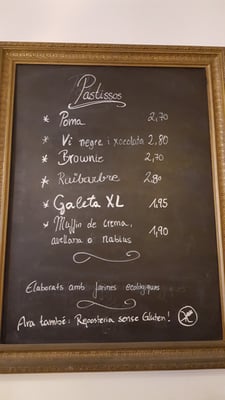 Pastissos
* Poma 2,70
* Vi negre i xocolata 2,80
* Brownie 2,70
* Ruibarbre 2,80
* Galeta XL 1,95
* Muffin de crema,
avellana o nabius 1,90
Elaborats amb farines ecològiques
Ara també: Reposteria sense Gluten!